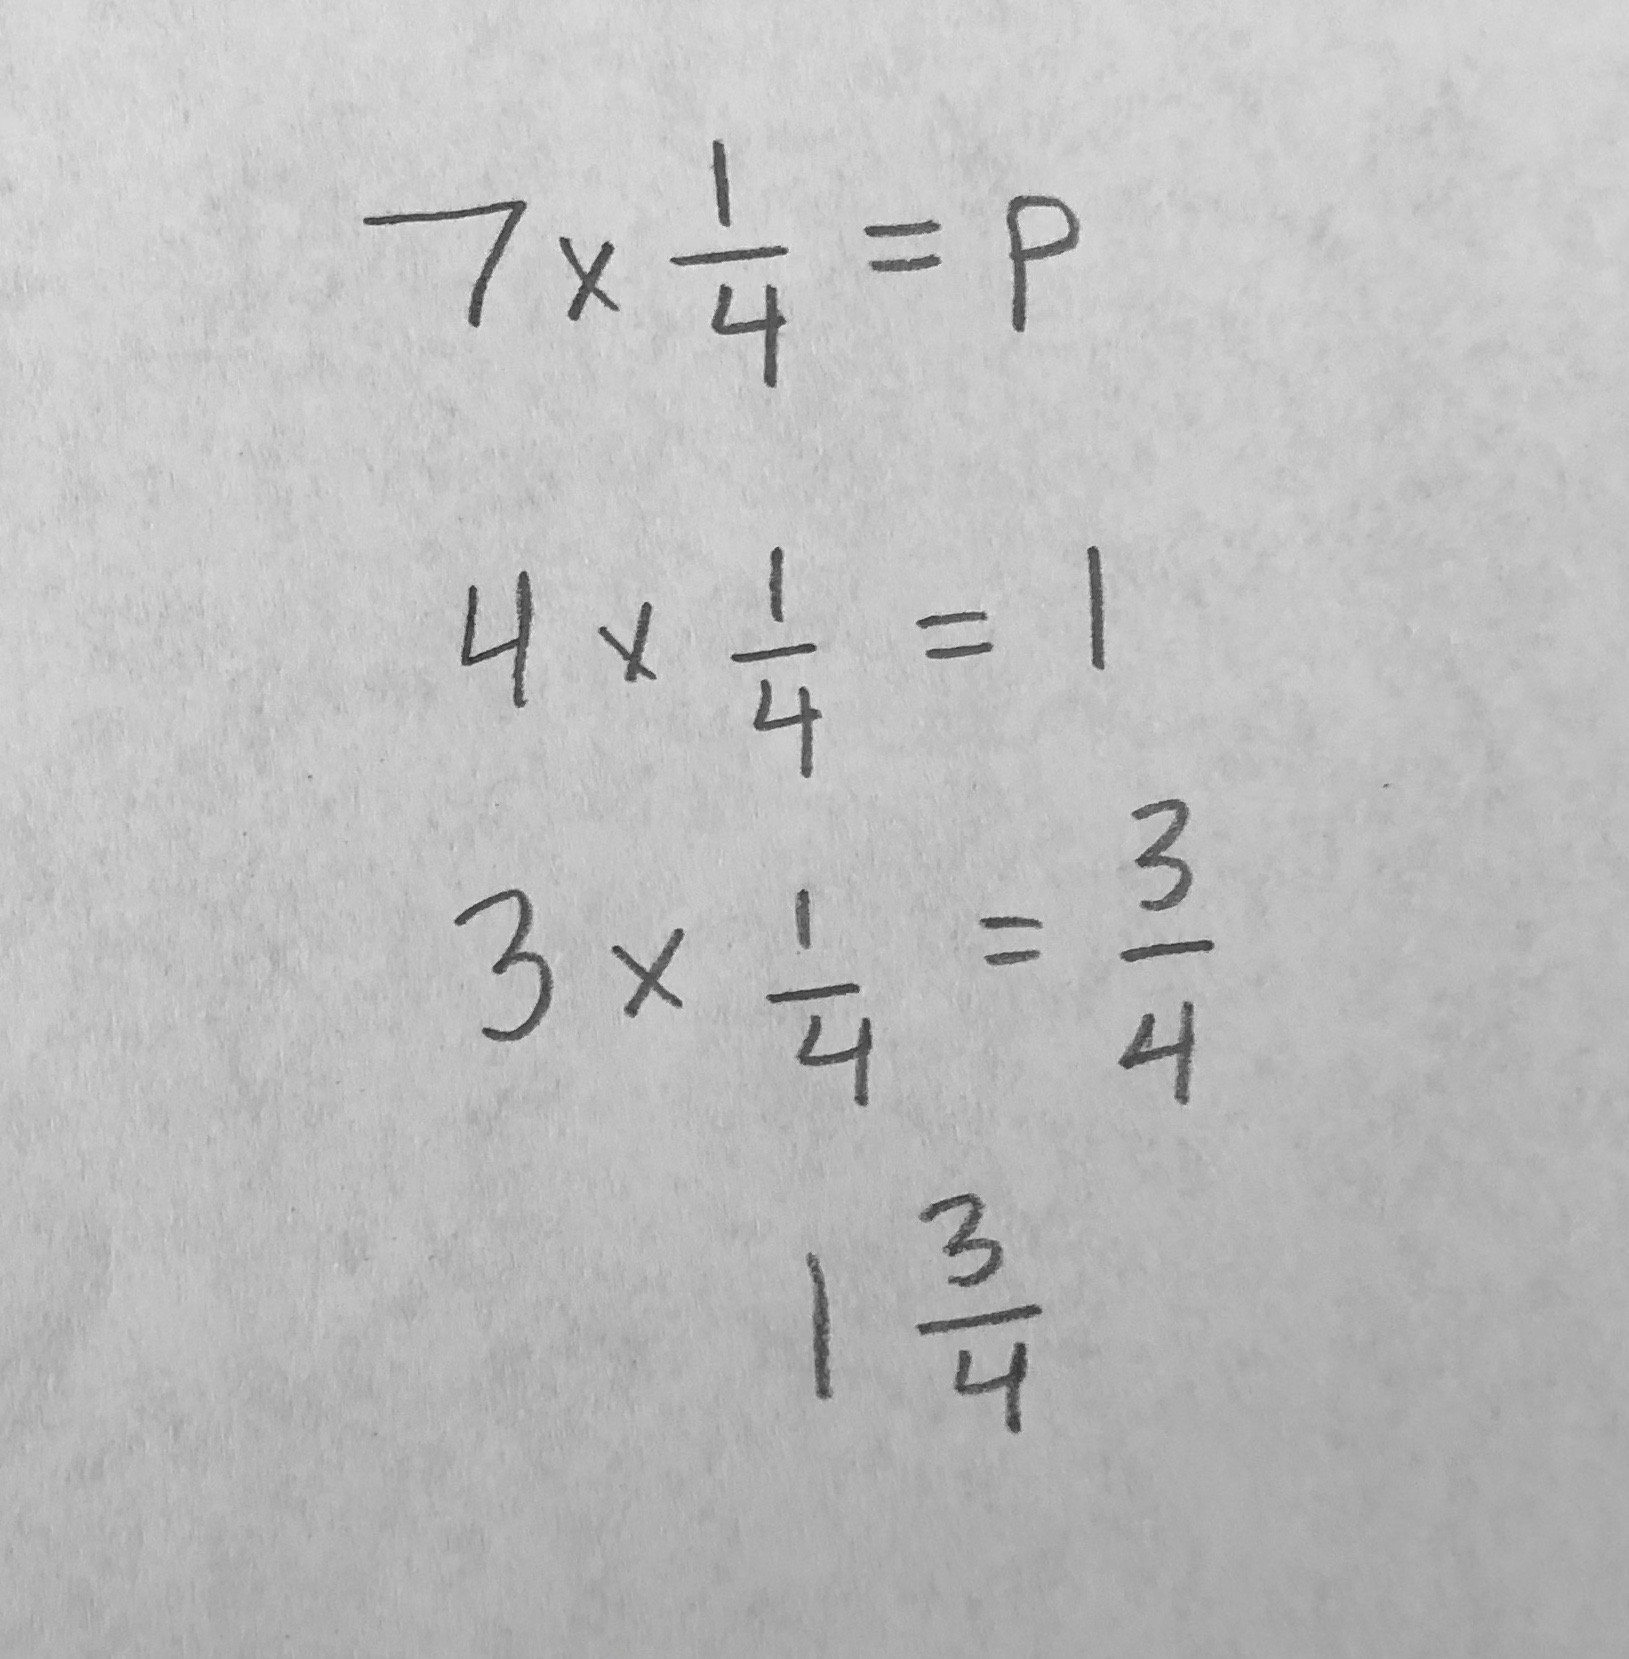 7 x 1/4 = P
4 x 1/4 = 1
3 x 1/4 = 3/4
1 3/4